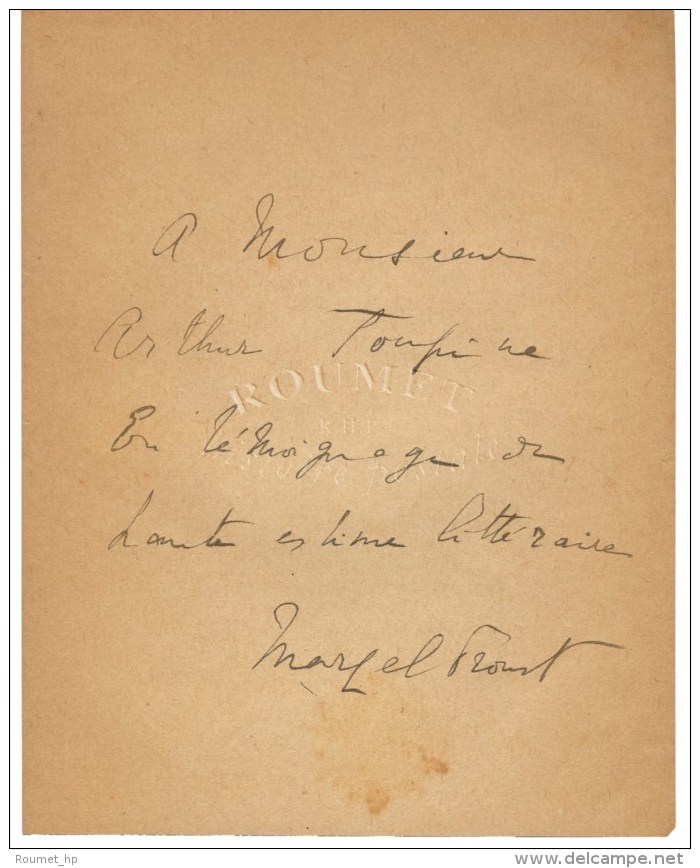 A Monsieur
Arthur Toupine
ROUMET
En témoignage de
haute estime littéraire
Marcel Proust
Roumet_hp
www.delcampe.net